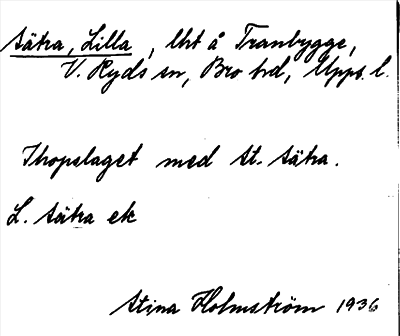 Sätra, Lilla, lht å Tranbygge,
V. Ryds sn, Bro hd, Upps. l.
Ihopslaget med St. Sätra.
L. Sätra ek
Stina Holmström 1936